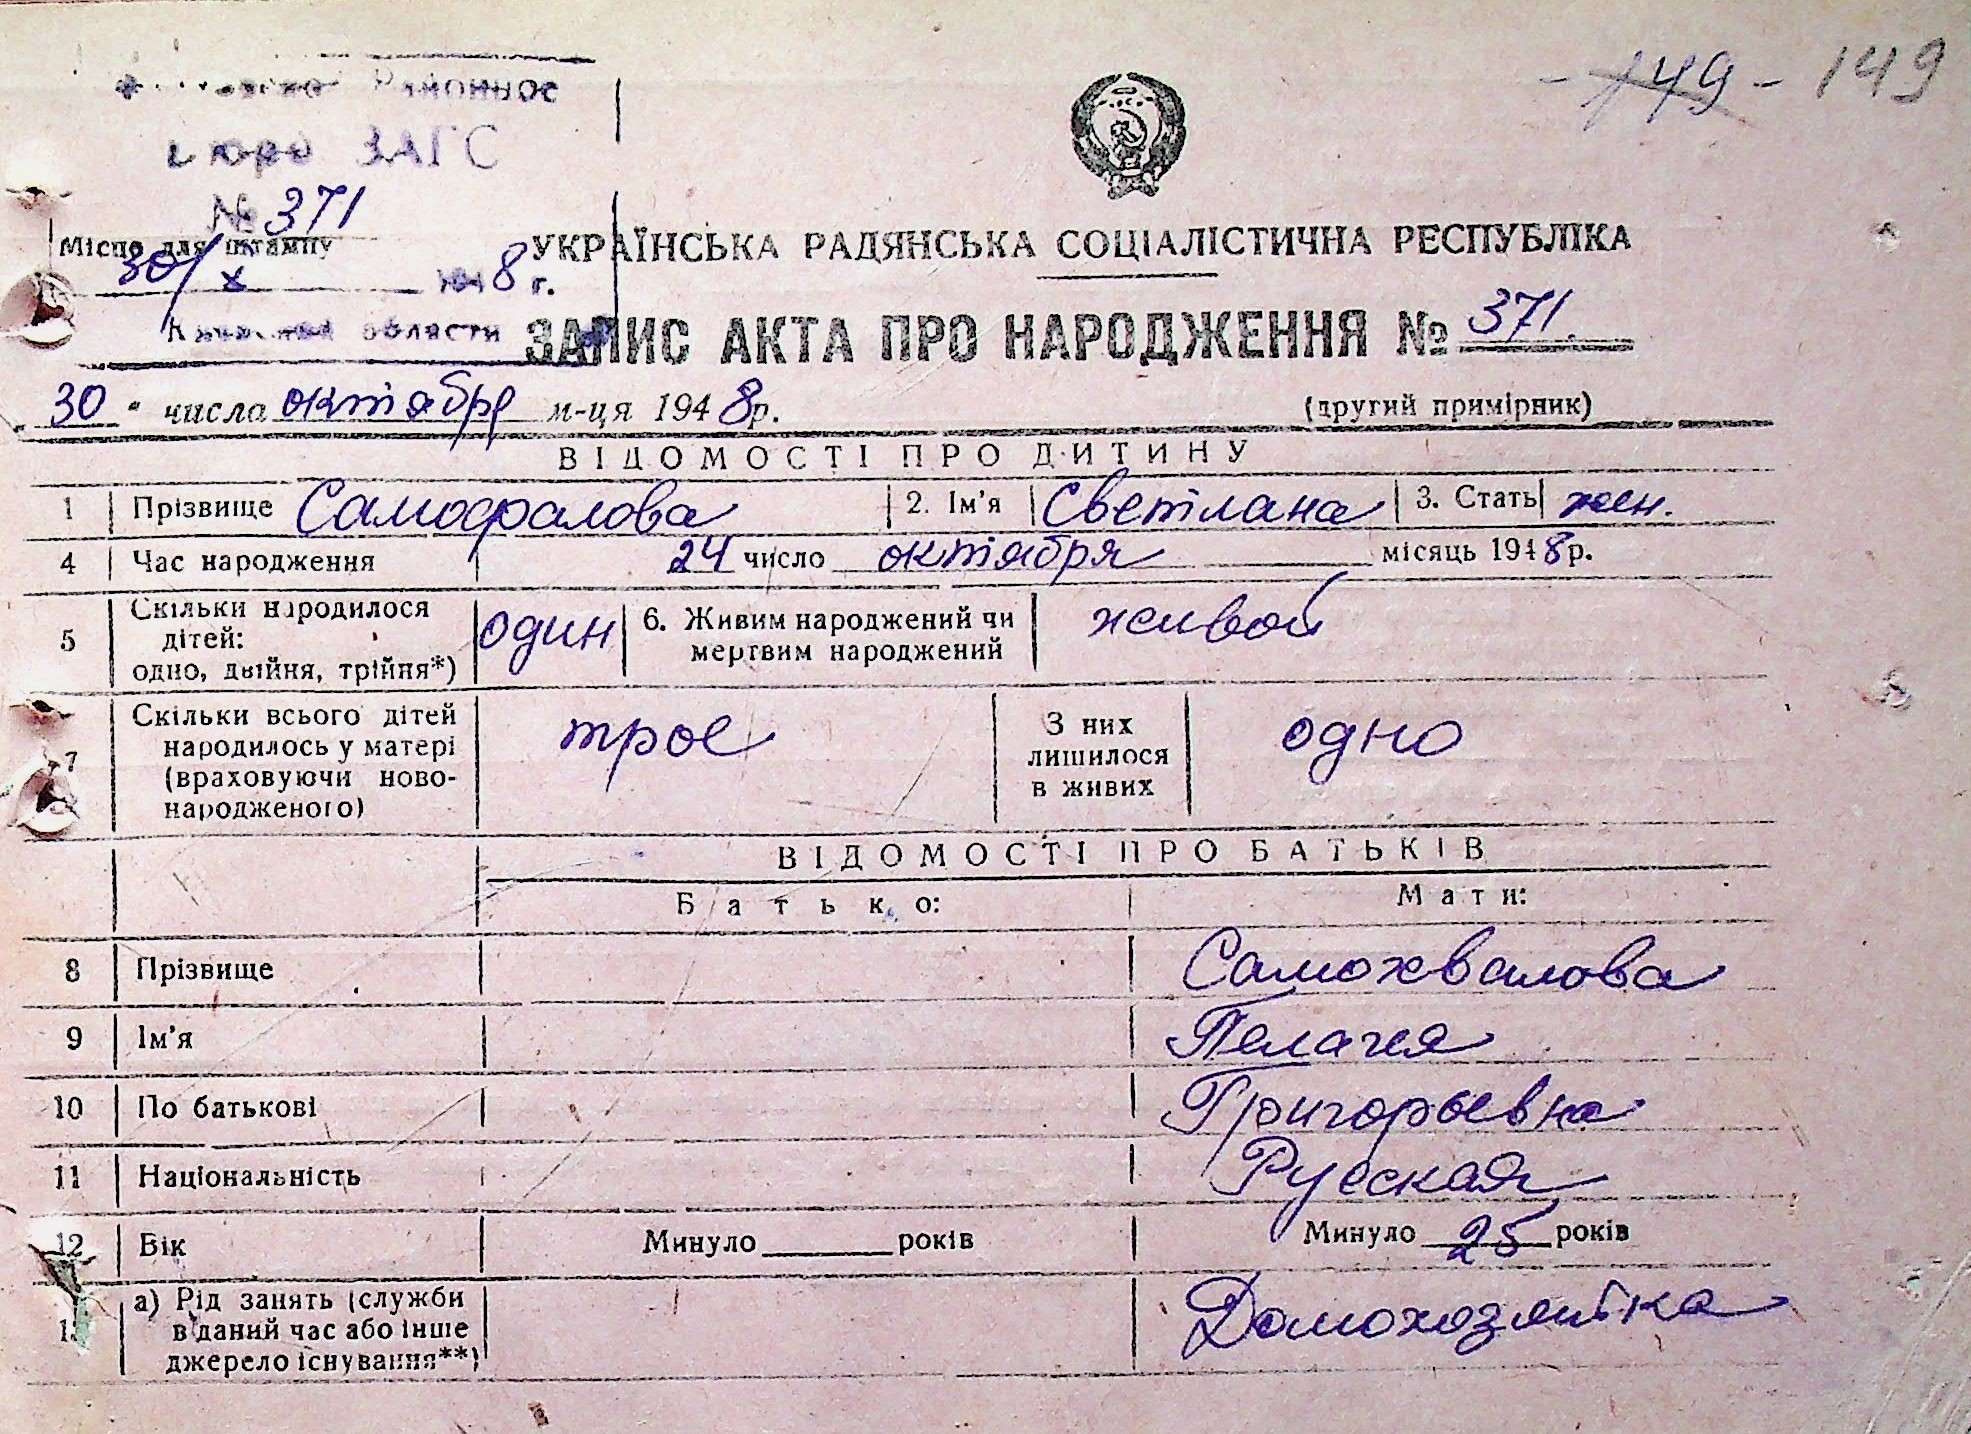 - 149 - 149
Районное
бюро ЗАГС
№ 371
Місце для штампу
30/X 1948 г.
области
УКРАЇНСЬКА РАДЯНСЬКА СОЦІАЛІСТИЧНА РЕСПУБЛІКА
ЗАПИС АКТА ПРО НАРОДЖЕННЯ № 371.
30 " числа октября м-ця 1948 р. (другий примірник)
ВІДОМОСТІ ПРО ДИТИНУ
1 Прізвище Самофалова 2. Ім'я Светлана 3. Стать жен.
4 Час народження 24 число октября місяць 1948 р.
5 Скільки народилося дітей: одно, двійня, трійня*) один 6. Живим народжений чи мертвим народжений живой
7 Скільки всього дітей народилось у матері (враховуючи новонародженого) трое З них лишилося в живих одно
ВІДОМОСТІ ПРО БАТЬКІВ
Батько: Мати:
8 Прізвище Самохвалова
9 Ім'я Пелагея
10 По батькові Григорьевна
11 Національність Русская
12 Вік Минуло ______ років Минуло 25 років
13 а) Рід занять (служби в даний час або інше джерело існування**) Домохозяйка